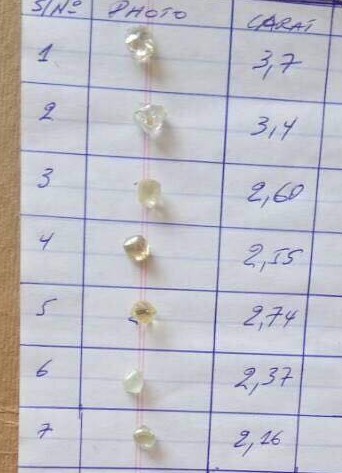 S/Nº PHOTO CARAT
1 3,7
2 3,4
3 2,60
4 2,55
5 2,74
6 2,37
7 2,26